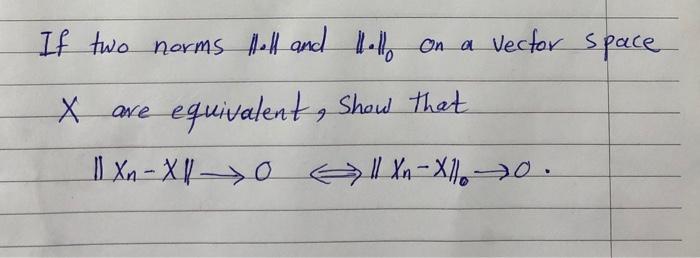 If two norms ||.|| and ||.||₀ on a vector space
X are equivalent, Show that
|| Xn - X || → 0 ⟺ || Xn - X ||₀ → 0.